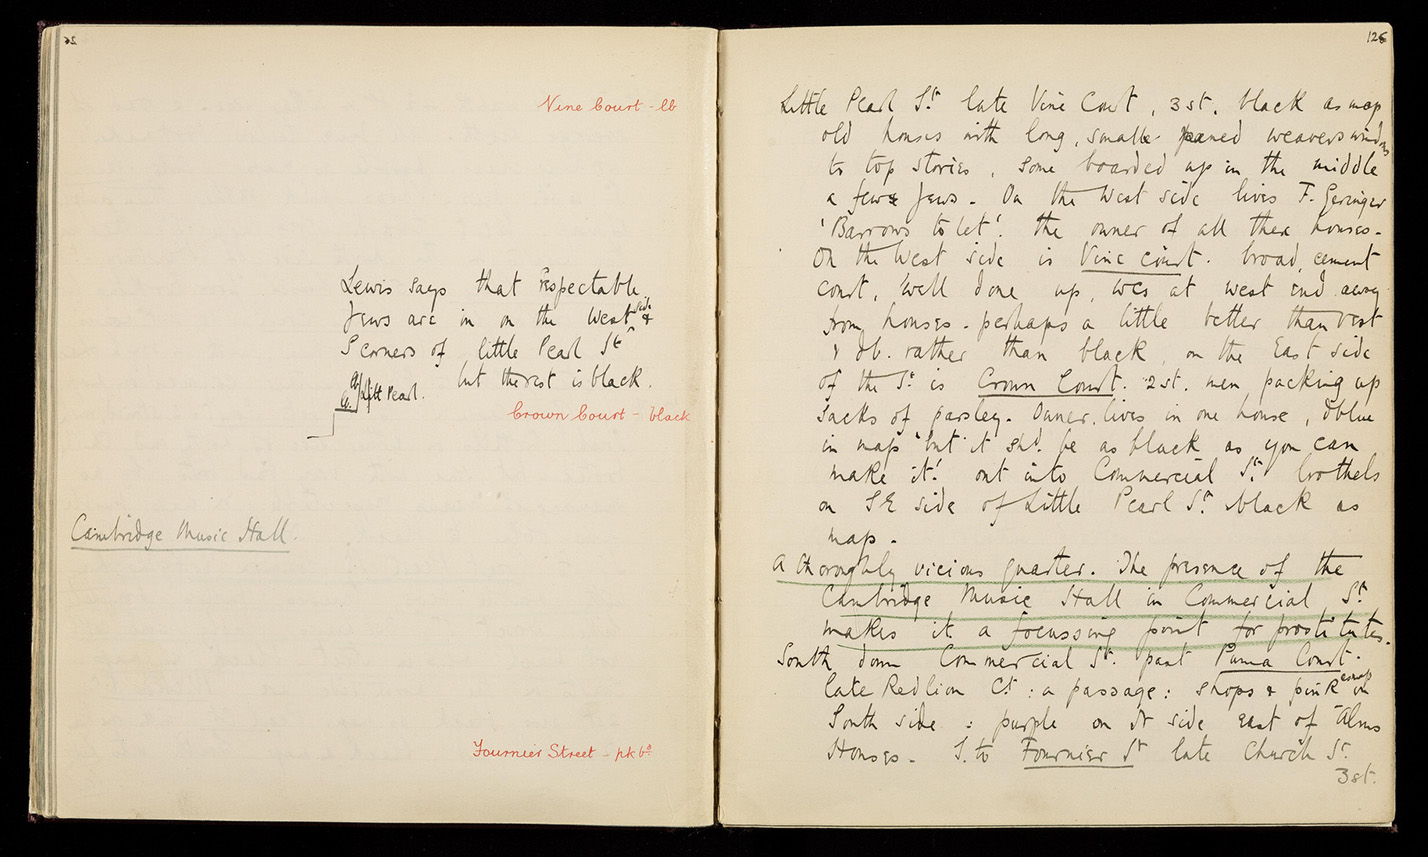 Vine Court - lb
Lewis says that respectable
Jews are in on the West side &
S corners of little Pearl St
but the rest is black.
Litt Pearl.
Crown Court - black
Cambridge Music Hall.
Fournier Street - pk b
126
Little Pearl St. late Vine Court, 3 st. black as map
old houses with long, small paned weavers windows
to top stories, some boarded up in the middle
a few Jews. On the West side lives F. Geringer
'Barrows to let'. the owner of all these houses.
On the West side is Vine Court. broad, cement
court, well done up, wcs at west end away
from houses. perhaps a little better than rest
& db. rather than black, on the East side
of the St is Crown Court. 2 st. men packing up
sacks of parsley. Owner lives in one house, dblue
in map 'but it shd. be as black as you can
make it'. out into Commercial St. brothels
on SE side of Little Pearl St. black as
map.
A thoroughly vicious quarter. The presence of the
Cambridge Music Hall in Commercial St.
makes it a focussing point for prostitutes.
South down Commercial St. past Puma Court.
late Redlion Ct: a passage: shops & pink as map on
South side: purple on N side east of Alms
Houses. S. to Fournier St late Church St.
3 st.